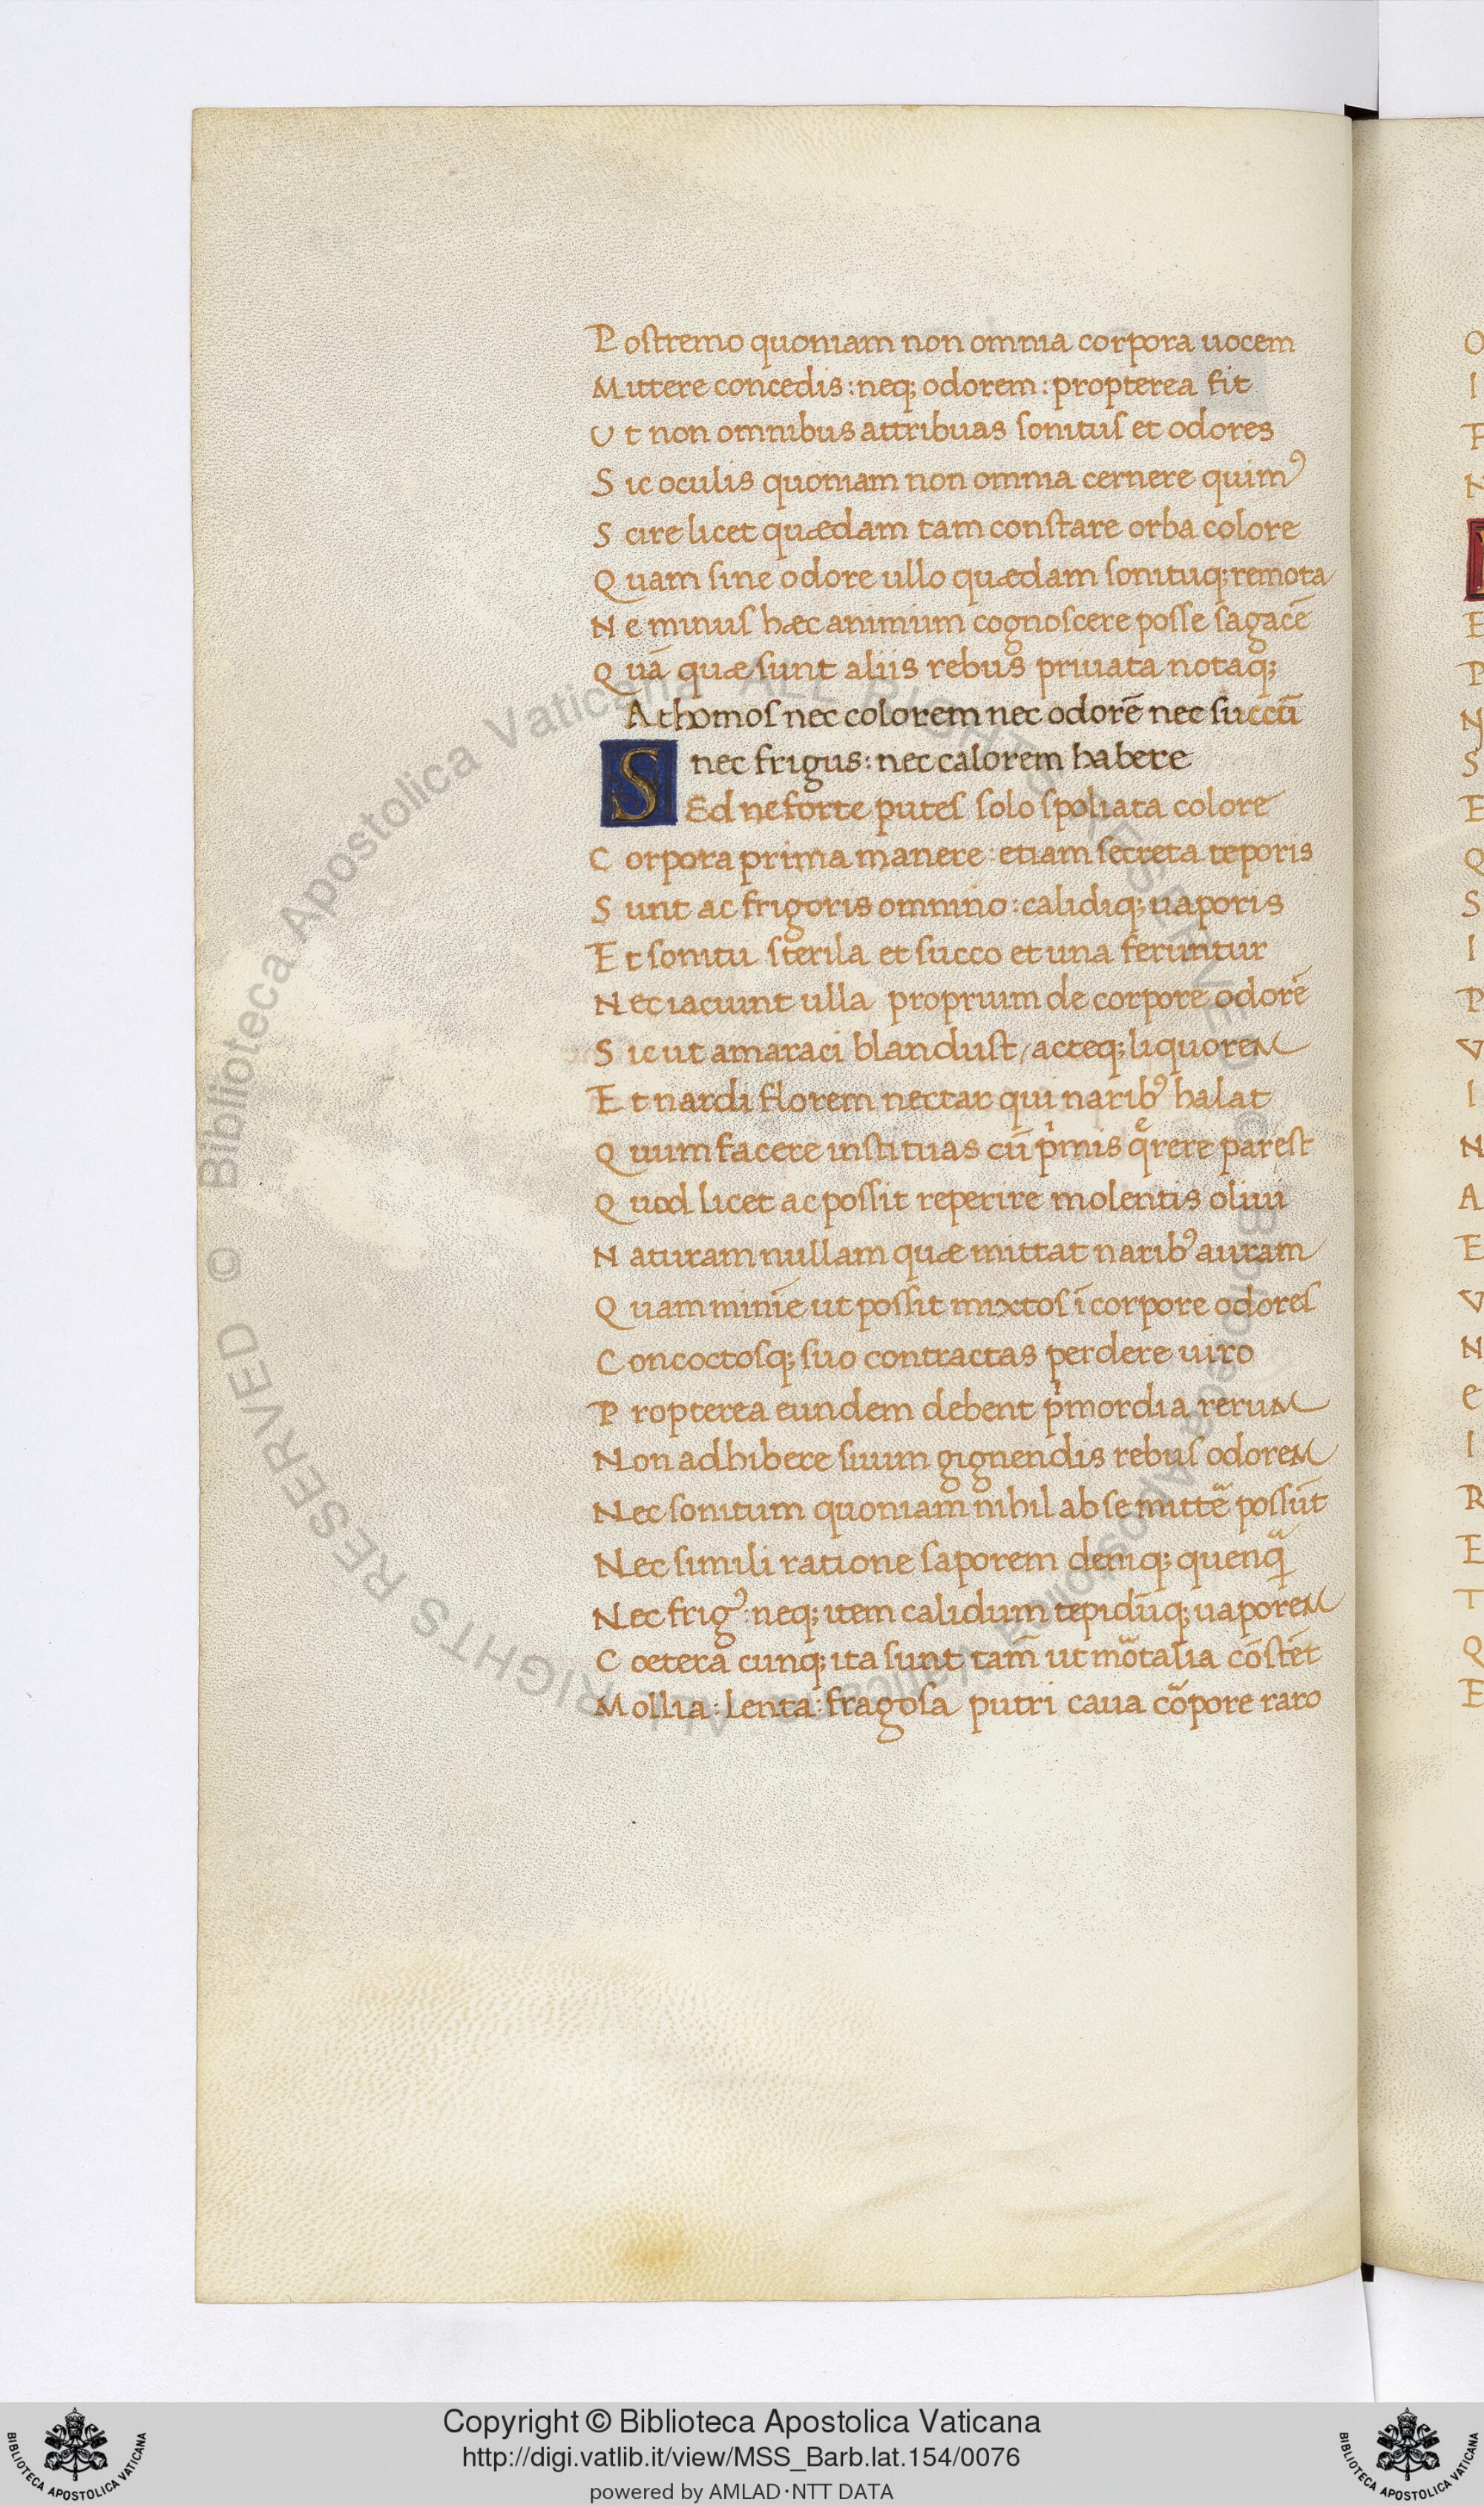 Postremo quoniam non omnia corpora uocem
Mittere concedis: neq; odorem: propterea fit
Ut non omnibus attribuas sonitus et odores
Sic oculis quoniam non omnia cernere quimꝰ
Scire licet quædam tam constare orba colore
Quam sine odore ullo quædam sonituq; remota
Ne minus hæc animium cognoscere posse sagacē
Quā quæ sunt aliis rebus priuata notaq;
Athomos nec colorem nec odorē nec succū
nec frigus: nec calorem habere
SEd ne forte putes solo spoliata colore
Corpora prima manere: etiam secreta teporis
Sunt ac frigoris omnino: calidiq; uaporis
Et sonitu sterila et succo et una feruntur
Nec iacuint ulla proprium de corpore odorē
Sic ut amaraci blandust / acteq; liquorem
Et nardi florem nectar qui naribꝰ halat
Quum facere instituas cū pͥmis qͤrere parest
Quod licet ac possit reperire molentis oliui
Naturam nullam quæ mittat naribꝰ auram
Quam minīe ut possit mixtos ī corpore odores
Concoctosq; suo contractas perdere uiro
Propterea eundem debent pͥmordia rerum
Non adhibere suum gignendis rebus odorem
Nec sonitum quoniam nihil ab se mittē possūt
Nec simili ratione saporem deniq; quenqᷓ
Nec frigꝰ: neq; item calidum tepidūq; uaporem
Coetera cunq; ita sunt tam̄ ut mōtalia cōstēt
Mollia: lenta: fragosa putri caua cōpore raro
Biblioteca Apostolica Vaticana ALL RIGHTS RESERVED ©
Biblioteca Apostolica Vaticana ALL RIGHTS RESERVED ©
Copyright © Biblioteca Apostolica Vaticana
http://digi.vatlib.it/view/MSS_Barb.lat.154/0076
powered by AMLAD·NTT DATA
BIBLIOTECA APOSTOLICA VATICANA
BIBLIOTECA APOSTOLICA VATICANA